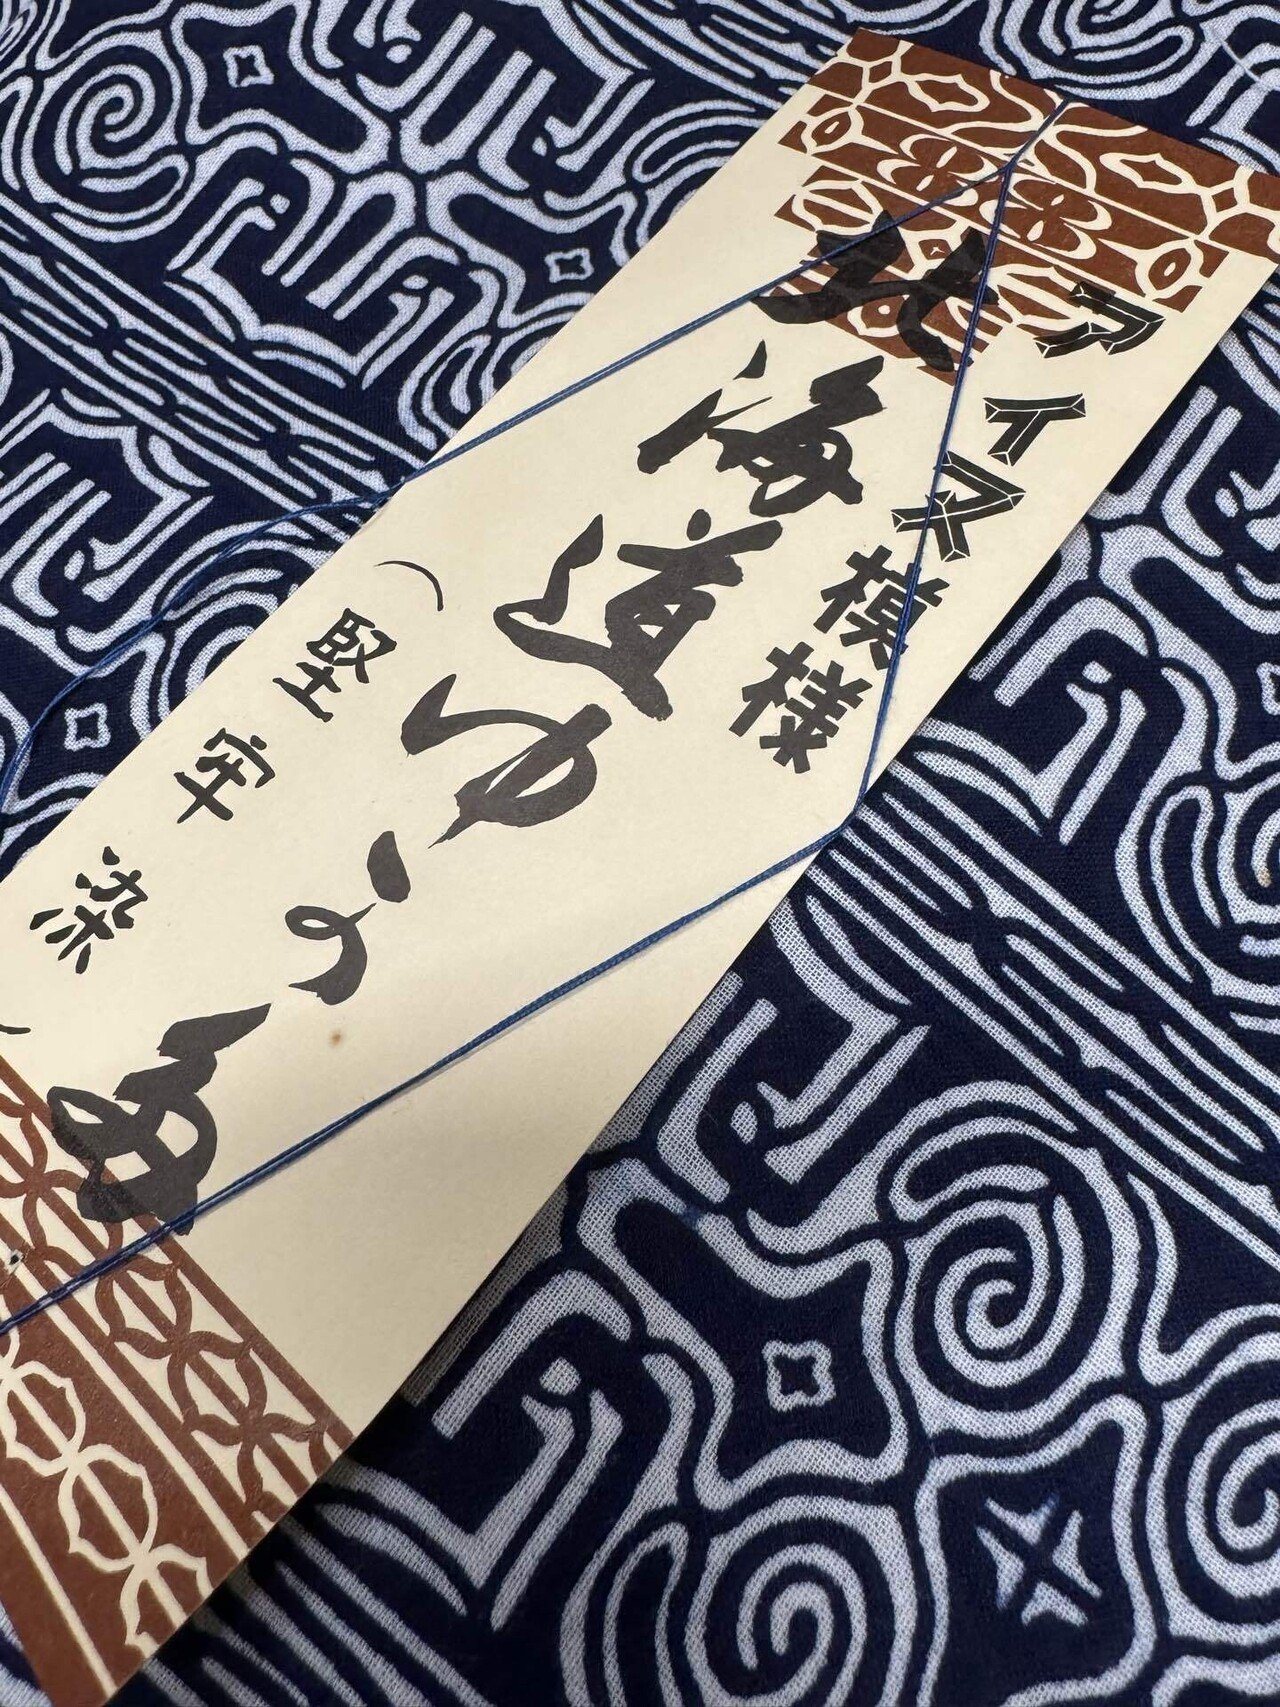 アイヌ模様
北海道ゆかた
（堅牢染）